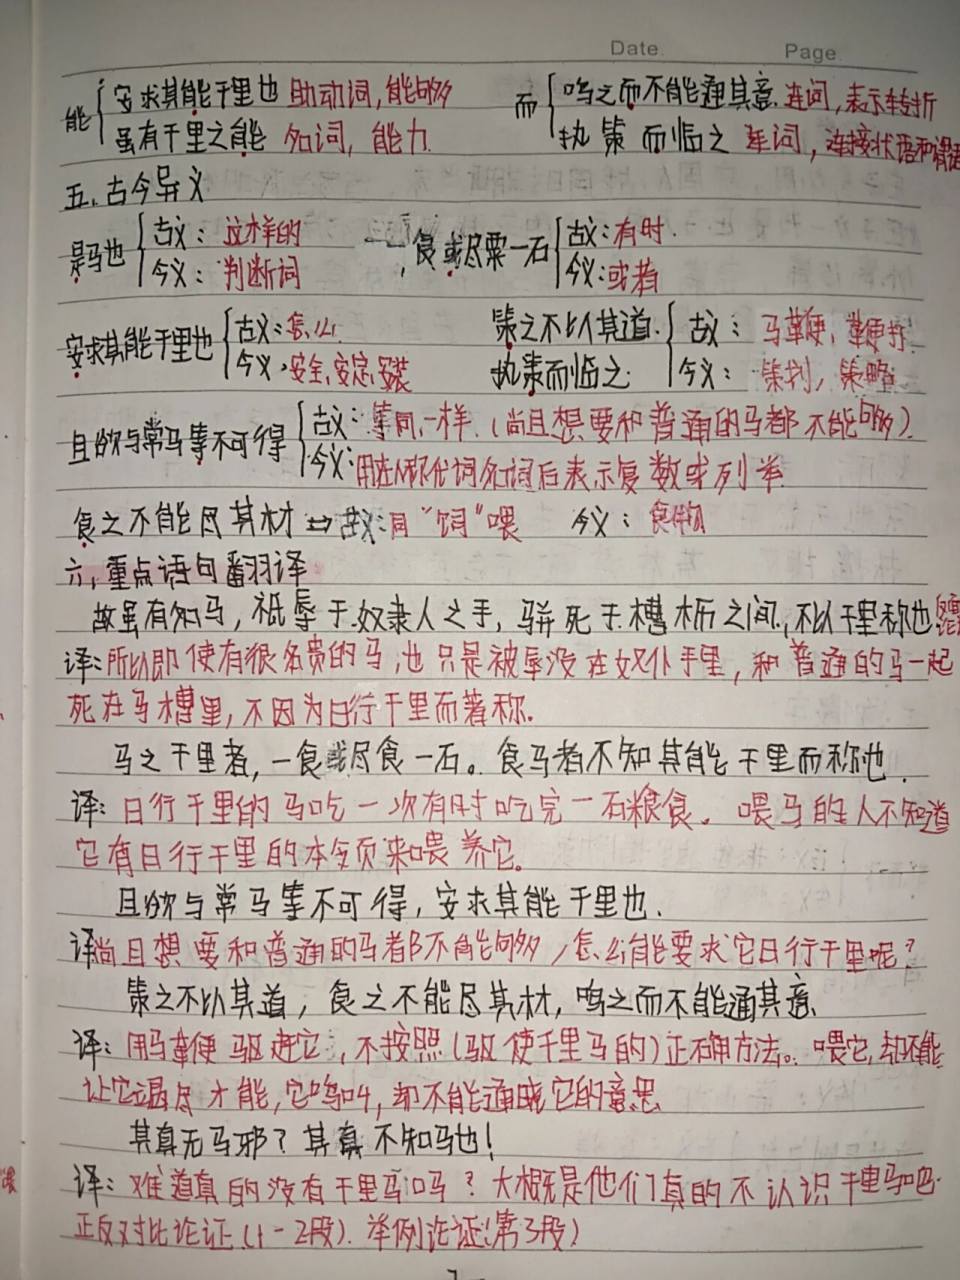 Date. Page
能 安求其能千里也 助动词,能够 而 鸣之而不能通其意.连词,表示转折
虽有千里之能 名词,能力. 执策而临之 连词,连接状语和谓语
五.古今异义
是马也 古义:这样的 一食或尽粟一石 古义:有时.
今义:判断词 今义:或者
安求其能千里也 古义:怎么 策之不以其道. 古义:马鞭,鞭打.
今义,安全,安定,安装 执策而临之 今义:策划,策略
且欲与常马等不可得 古义:等同,一样.(尚且想要和普通的马都不能够).
今义:用在人称代词名词后表示复数或列举
食之不能尽其材 古义:同“饲”喂 今义:食物
六,重点语句翻译
故虽有名马,祗辱于奴隶人之手,骈死于槽枥之间,不以千里称也
译:所以即使有很名贵的马,也只是被辱没在奴仆手里,和普通的马一起
死在马槽里,不因为日行千里而著称.
马之千里者,一食或尽食一石。食马者不知其能千里而称也.
译:日行千里的马吃一次有时吃完一石粮食。喂马的人不知道
它有日行千里的本领来喂养它。
且欲与常马等不可得,安求其能千里也.
译尚且想要和普通的马都不能够,怎么能要求它日行千里呢?
策之不以其道,食之不能尽其材,鸣之而不能通其意.
译:用马鞭驱赶它,不按照(驱使千里马的)正确方法。喂它,却不能
让它竭尽才能,它鸣叫,却不能通晓它的意思
其真无马邪?其真不知马也!
译:难道真的没有千里马吗?大概是他们真的不认识千里马吧.
正反对比论证(1-2段).举例论证(第3段)